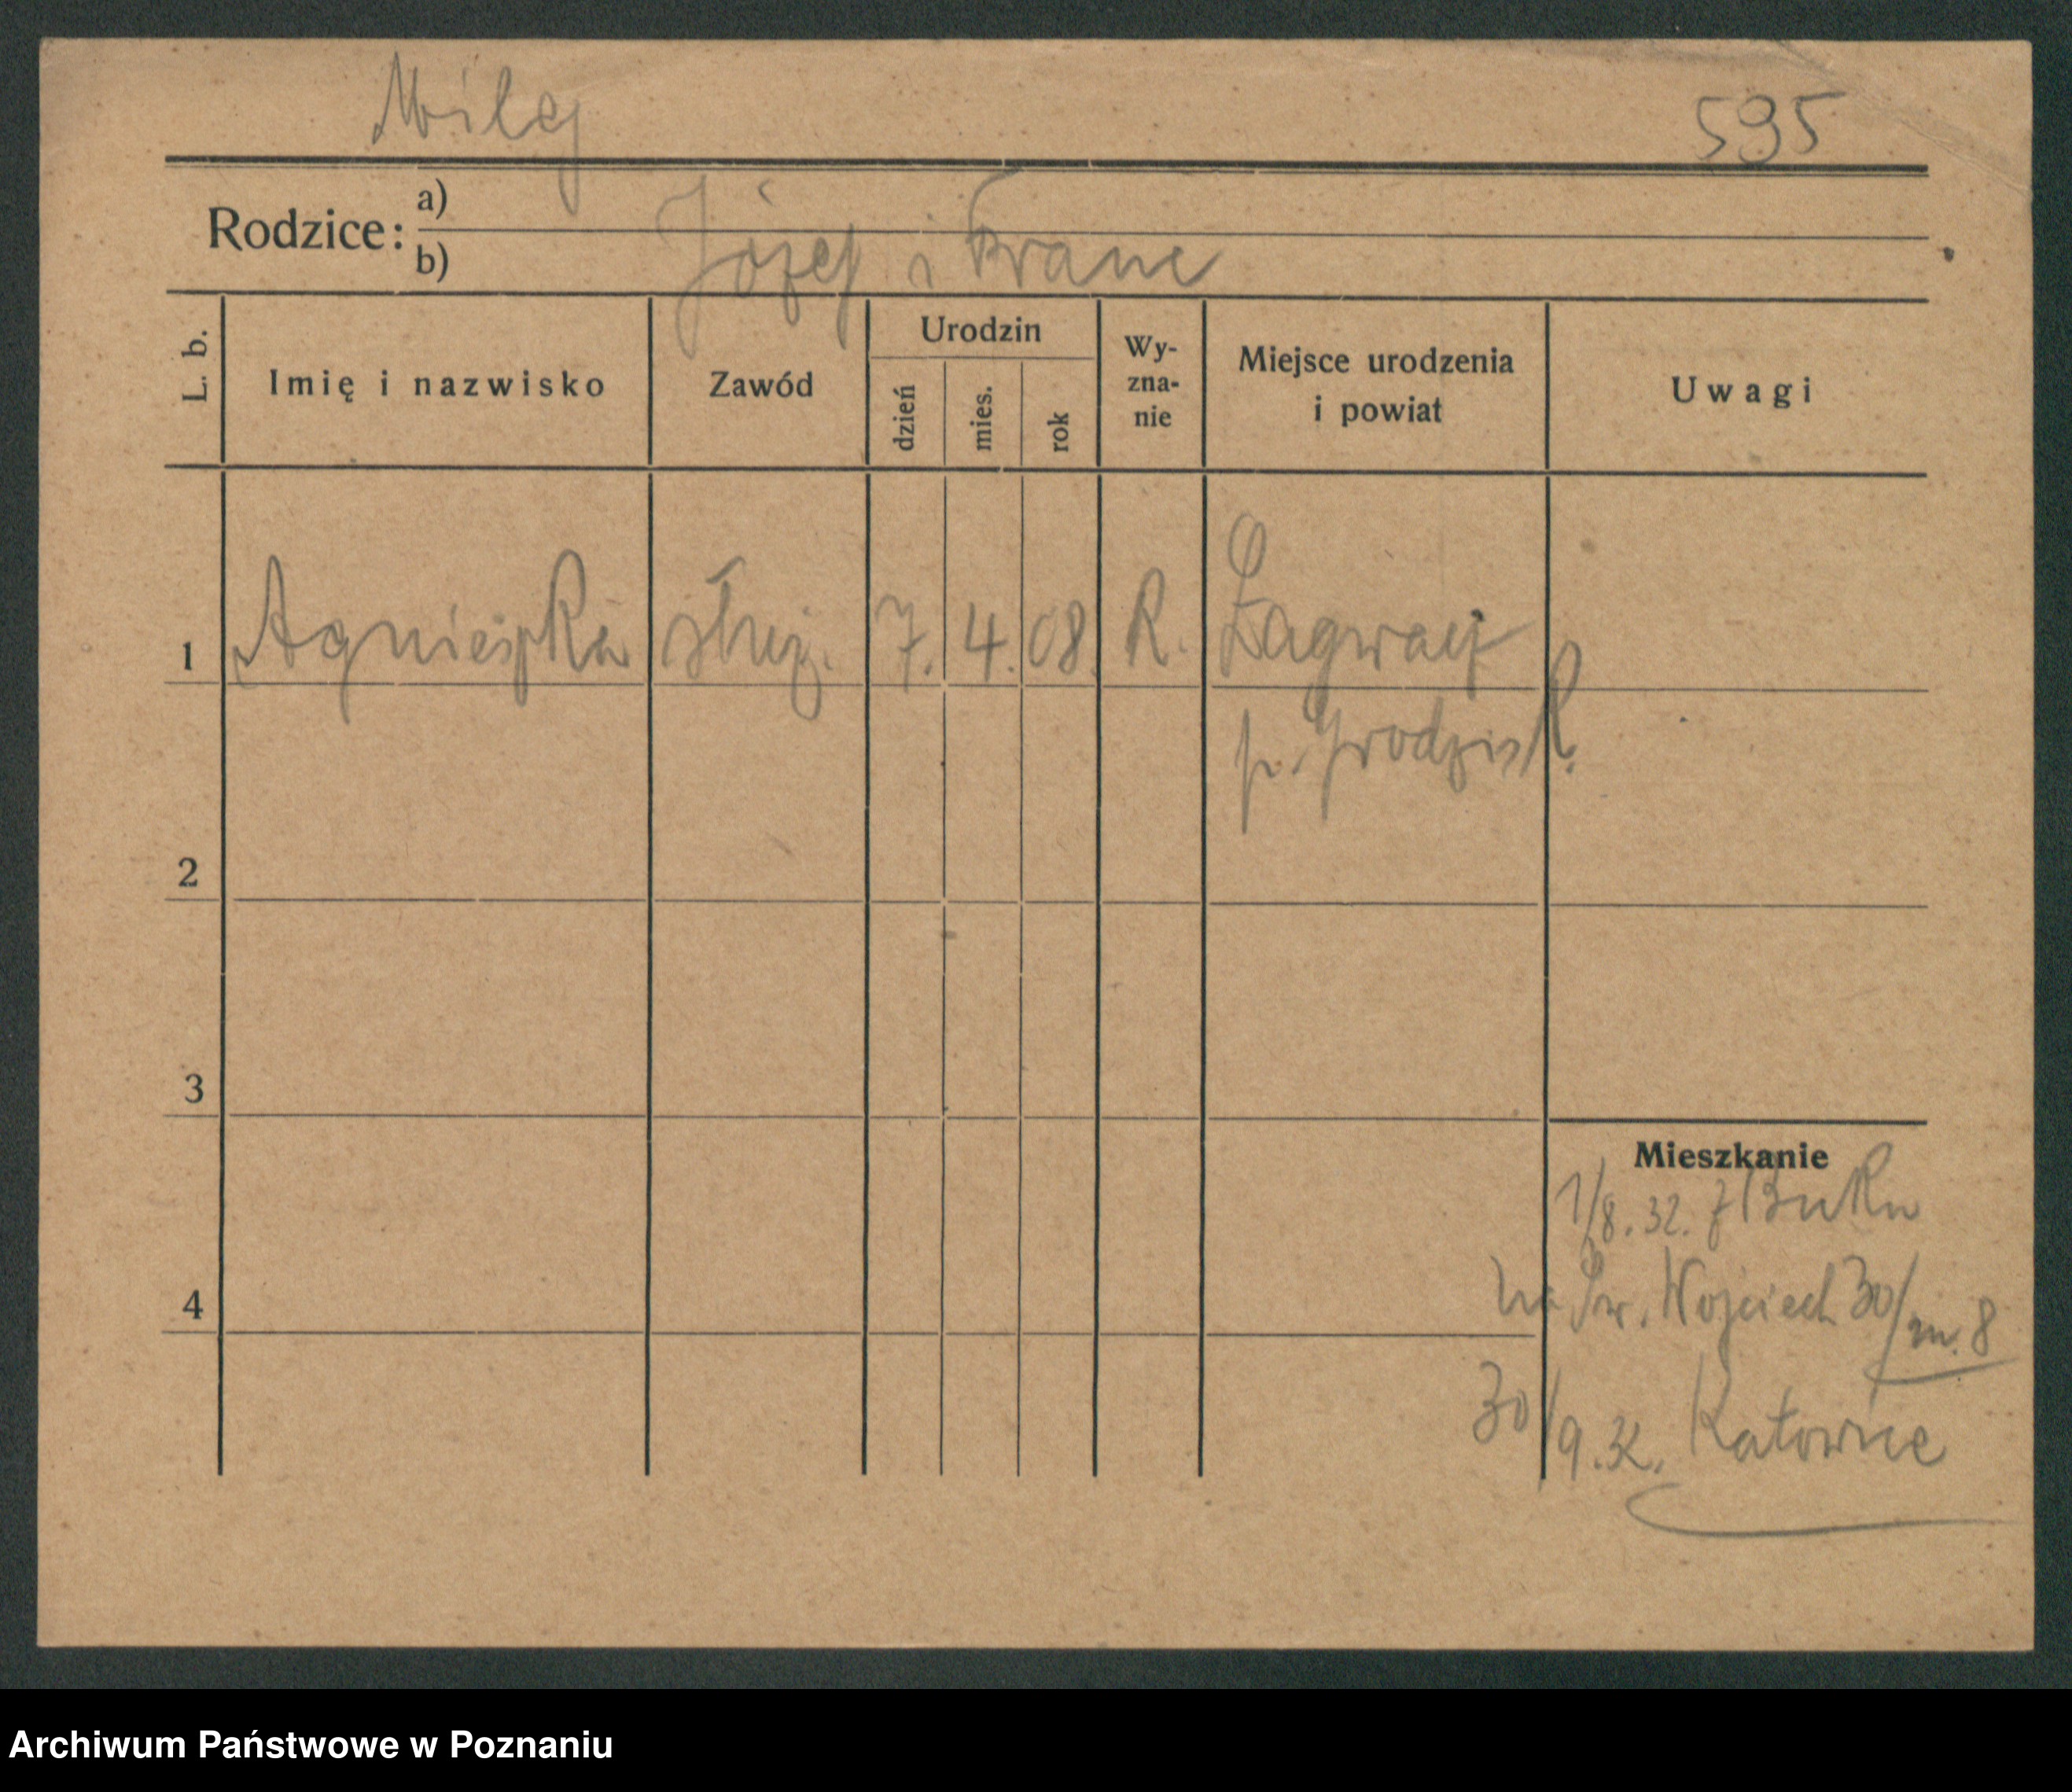 Miley 595
Rodzice: a)
b) Józef i Franc
L. b. Imię i nazwisko Zawód Urodzin dzień mies. rok Wy-zna-nie Miejsce urodzenia i powiat Uwagi
1 Agnieszka służ. 7. 4. 08. R.
p. Grodzisk.
2
3
Mieszkanie
1/8. 32. z Buku
4
na Św. Wojciech 30/m. 8
30/9. 32. Katowice
Archiwum Państwowe w Poznaniu